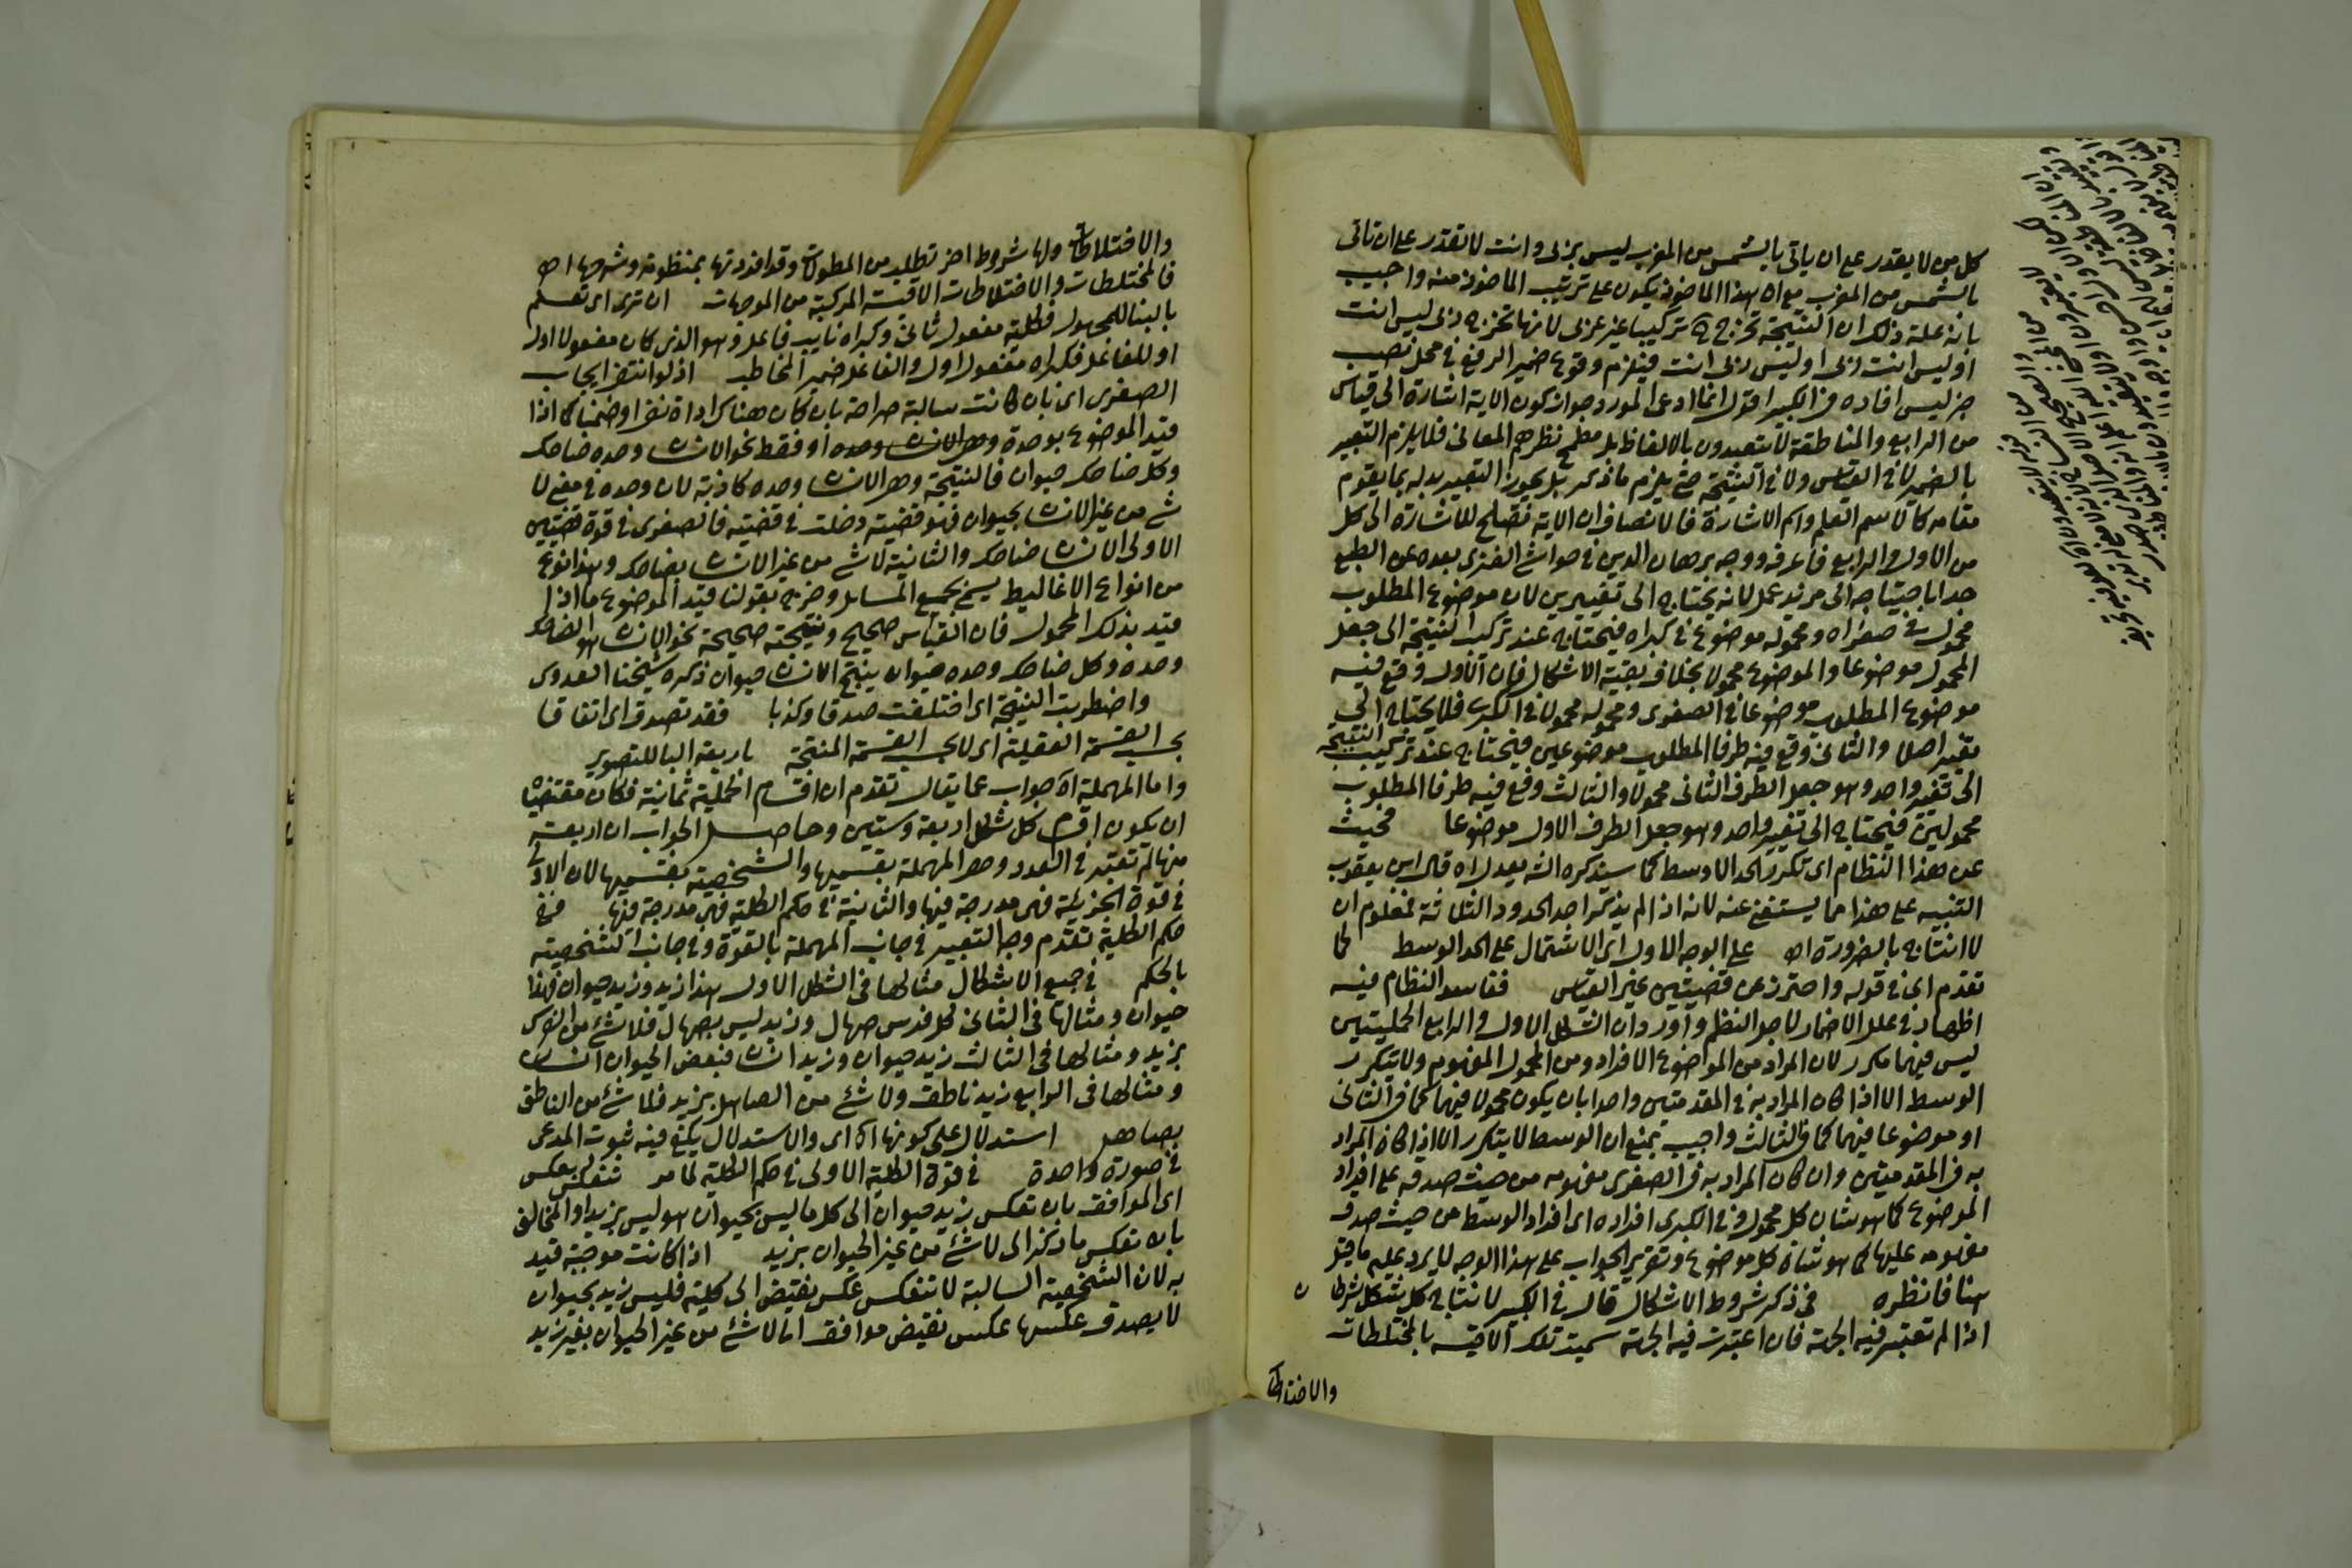 كل من لا يقدر على ان ياتي بالشمس من المغرب ليس بربي وانت لا تقدر على ان تاتي
بالشمس من المغرب هذا الماخوذ يكون على ترتيب الماخوذ منه واجيب
بانه علة ذلك ان النتيجة تخرج تركيبا غير عربي لانها تخرج ربي ليس انت
او ليس انت ربي او ليس ربي انت فيلزم وقوع ضمير الرفع في محل نصب
خبر ليس افاده في الكبير اقول انما ادعى المورد جواز كون الاية اشارة الى قياس
من الرابع والمناطقة لا يتعبدون بالالفاظ بل مطمح نظرهم المعاني فلا يلزم التعبير
بالضمير لا في القياس ولا في النتيجة حتى يلزم ما ذكر بل يجوز التعبير بدله بما يقوم
مقامه كالاسم العلم واسم الاشارة فالانصاف ان الاية تصلح للاشارة الى كل
من الاول والرابع فاعرفه ووجه برهان الدين في حواشي الفنري بعده عن الطبع
جدا باحتياجه الى مزيد عمل لانه يحتاج الى تغييرين لان موضوع المطلوب
محمول في صغراه ومحموله موضوع في كبراه فيحتاج عند تركيب النتيجة الى جعل
المحمول موضوعا والموضوع محمولا بخلاف بقية الاشكال فان الاول وقع فيه
موضوع المطلوب موضوعا في الصغرى ومحموله محمولا في الكبرى فلا يحتاج الى
تغيير اصلا والثاني وقع فيه طرفا المطلوب موضوعين فيحتاج عند تركيب النتيجة
الى تغيير واحد وهو جعل الطرف الثاني محمولا والثالث وقع فيه طرفا المطلوب
محمولين فيحتاج الى تغيير واحد وهو جعل الطرف الاول موضوعا فحيث
عن هذا النظام اى تكرر الحد الاوسط كما سيذكره الش بعد اه قال ابن يعقوب
التنبيه على هذا مما يستغنى عنه لانه اذا لم يذكر احد الحدود الثلاثة فمعلوم ان
لا انتاج بالضرورة اه على الوجه الاول اى الاشتمال على الحد الوسط لما
تقدم اى في قوله واحترز عن قضيتين غير القياس ففاسد النظام فيه
اظهار في محل الاضمار لاجل النظم واورد ان الشكل الاول والرابع الحمليتين
ليس فيهما مكرر لان المراد من المواضوع الافراد ومن المحمول المفهوم ولا يتكرر
الوسط الا اذا كان المراد به في المقدمتين واحدا بان يكون محمولا فيهما كما في الثاني
او موضوعا فيهما كما في الثالث واجيب بمنع ان الوسط لا يتكرر الا اذا كان المراد
به في المقدمتين وان كان المراد به في الصغرى مفهومه من حيث صدقه على افراد
الموضوع كما هو شان كل محمول وفي الكبرى افراده اى افراد الوسط من حيث صدق
مفهومه عليها كما هو شان كل موضوع وتقرير الجواب على هذا الوجه لا يرد عليه ما قيل
هنا فانظره في ذكر شروط الاشكال قال في الكبير لانتاج كل شكل شرط
اذا لم تعتبر فيه الجهة فان اعتبرت فيه الجهة سميت تلك الاقيسة بالمختلطات
والاختلاطات
والاختلاطات ولها شروط اخر تطلب من المطولات وقد افردتها بمنظومة وشرحها اه
فالمختلطات والاختلاطات الاقيسة المركبة من الموجهات ان ترى اى تعلم
بالبنا للمجهول فكلية مفعول ثاني وكبراه نايب فاعل وهو الذى كان مفعولا اول
او للفاعل فكبراه مفعول اول والفاعل ضمير المخاطب اذ لو انتفى ايجاب
الصغرى اى بان كانت سالبة صراحة بان كان هناك اداة نفي او ضمنا كما اذا
قيد الموضوع بوحدة وحدها وحده او فقط نحو الانسان وحده ضاحك
وكل ضاحك حيوان فالنتيجة وهي الانسان وحده كاذبة لان وحده في معنى لا
شى من غير الانسان بحيوان فهو قضية دخلت في قضية فالصغرى في قوة قضيتين
الاولى الانسان ضاحك والثانية لا شي من غير الانسان بضاحك وهذا نوع
من انواع الاغاليط يسمى بجمع المسائل وخرج بقولنا قيد الموضوع ما اذا
قيد بذلك المحمول فان القياس صحيح ونتيجته صحيحة نحو الانسان هو الضاحك
وحده وكل ضاحك وحده حيوان ينتج الانسان حيوان ذكره شيخنا العدوى
واضطربت النتيجة اى اختلفت صدقا وكذبا فقد تصدق اى اتفاقا
بحسب القسمة العقلية اى لا بحسب القسمة المنتجة باربعة البا للتصوير
واما المهملة اه جواب عما يقال تقدم ان اقسام الحملية ثمانية فكان مقتضاه
ان يكون اقسام كل شكل اربعة وستين وحاصل الجواب ان اربعة
منها لم تعتبر في العدد وهي المهملة بقسميها والشخصية بقسميها لان الاولى
في قوة الجزئية فهى مدرجة فيها والثانية في حكم الكلية فهى مدرجة فيها في
حكم الكلية تقدم وجه التعبير في جانب المهملة بالقوة وفي جانب الشخصية
بالحكم في جميع الاشكال مثالها في الشكل الاول هذا زيد وزيد حيوان فهذا
حيوان ومثالها في الثاني كل فرس صهال وزيد ليس بصهال فلا شئ من الفرس
بزيد ومثالها في الثالث زيد حيوان وزيد انسان فبعض الحيوان انسان
ومثالها في الرابع زيد ناطق ولا شئ من الصاهل بزيد فلا شئ من الناطق
بصاهل استدلال على كونها اه اى والاستدلال يكفي فيه ثبوت المدعى
في صورة واحدة في قوة الكلية الاولى في حكم الكلية لما مر تنعكس بعكس
اى الموافق بان تعكس زيد حيوان الى كل ما ليس بحيوان هو ليس بزيد او المخالف
بان تعكس ما ذكر الى لا شئ من غير الحيوان بزيد اذا كانت موجبة قيد
به لان الشخصية السالبة لا تنعكس عكس نقيض الى كلية فليس زيد بحيوان
لا يصدق عكسها عكس نقيض موافق اما لا شئ من غير الحيوان بغير زيد